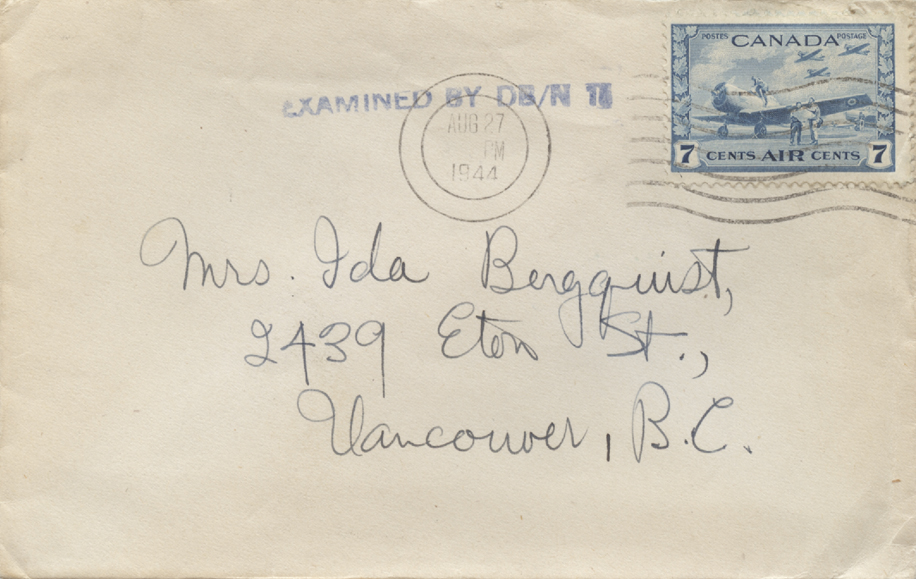 POSTES CANADA POSTAGE
7 CENTS AIR CENTS 7
EXAMINED BY DB/N
AUG 27
PM
1944
Mrs. Ida Bergquist,
2439 Eton St.,
Vancouver, B.C.